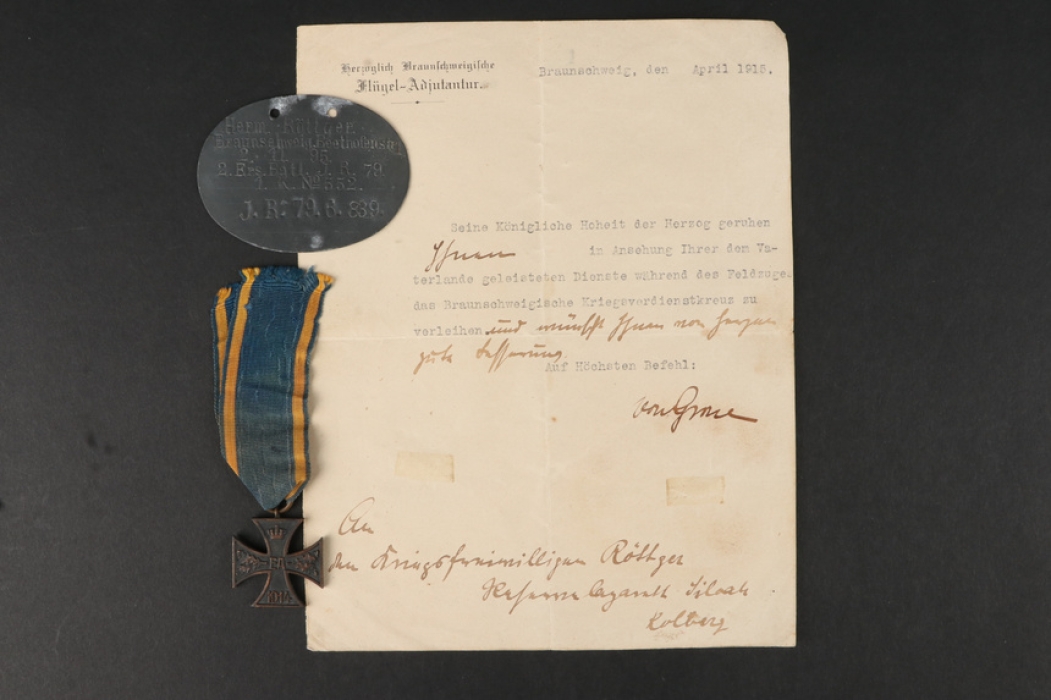 Herzoglich Braunschweigische
Flügel-Adjutantur.
Braunschweig, den April 1915.
Herm. Röttger
Braunschweig, Beethovenstr.
2. 11. 95.
2. Ers. Batl. J. R. 79.
1. K. No 552.
J. R. 79. 6. 839.
Seine Königliche Hoheit der Herzog geruhen
Ihnen in Ansehung Ihrer dem Va-
terlande geleisteten Dienste während des Feldzuges
das Braunschweigische Kriegsverdienstkreuz zu
verleihen und wünscht Ihnen von Herzen
gute Besserung.
Auf Höchsten Befehl:
von Grone
An
den Kriegsfreiwilligen Röttger
Reservelazarett Siloah
Kolberg
EA
1914